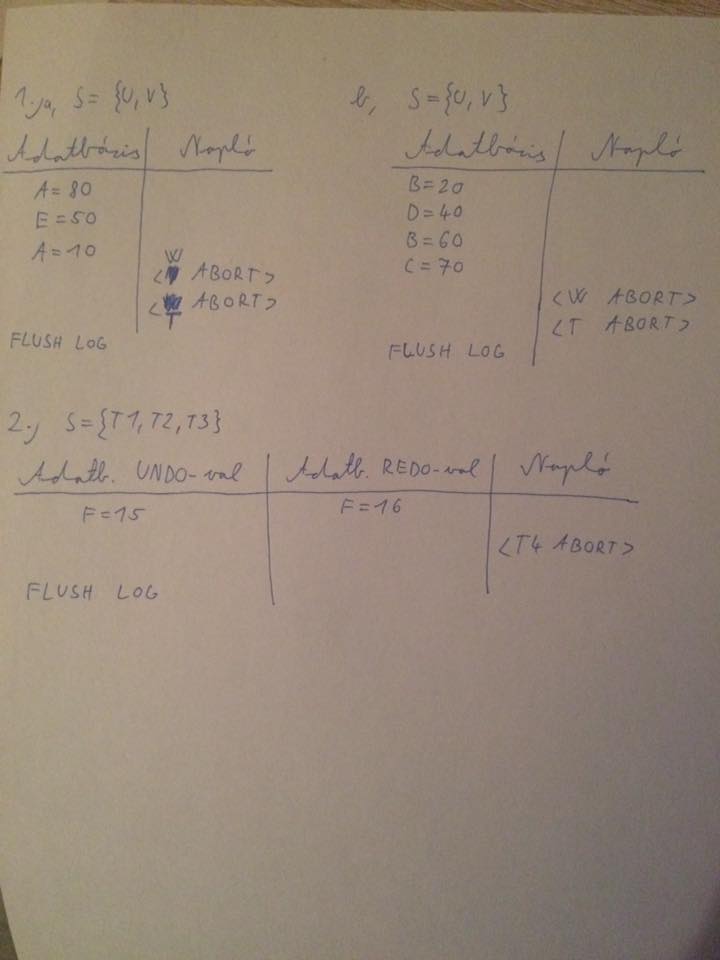 1., a, S = {U, V}
Adatbázis Napló
A = 80
E = 50
A = 10
<W ABORT>
<T ABORT>
FLUSH LOG
b, S = {U, V}
Adatbázis Napló
B = 20
D = 40
B = 60
C = 70
<W ABORT>
<T ABORT>
FLUSH LOG
2., S = {T1, T2, T3}
Adatb. UNDO-val Adatb. REDO-val Napló
F = 15 F = 16
<T4 ABORT>
FLUSH LOG